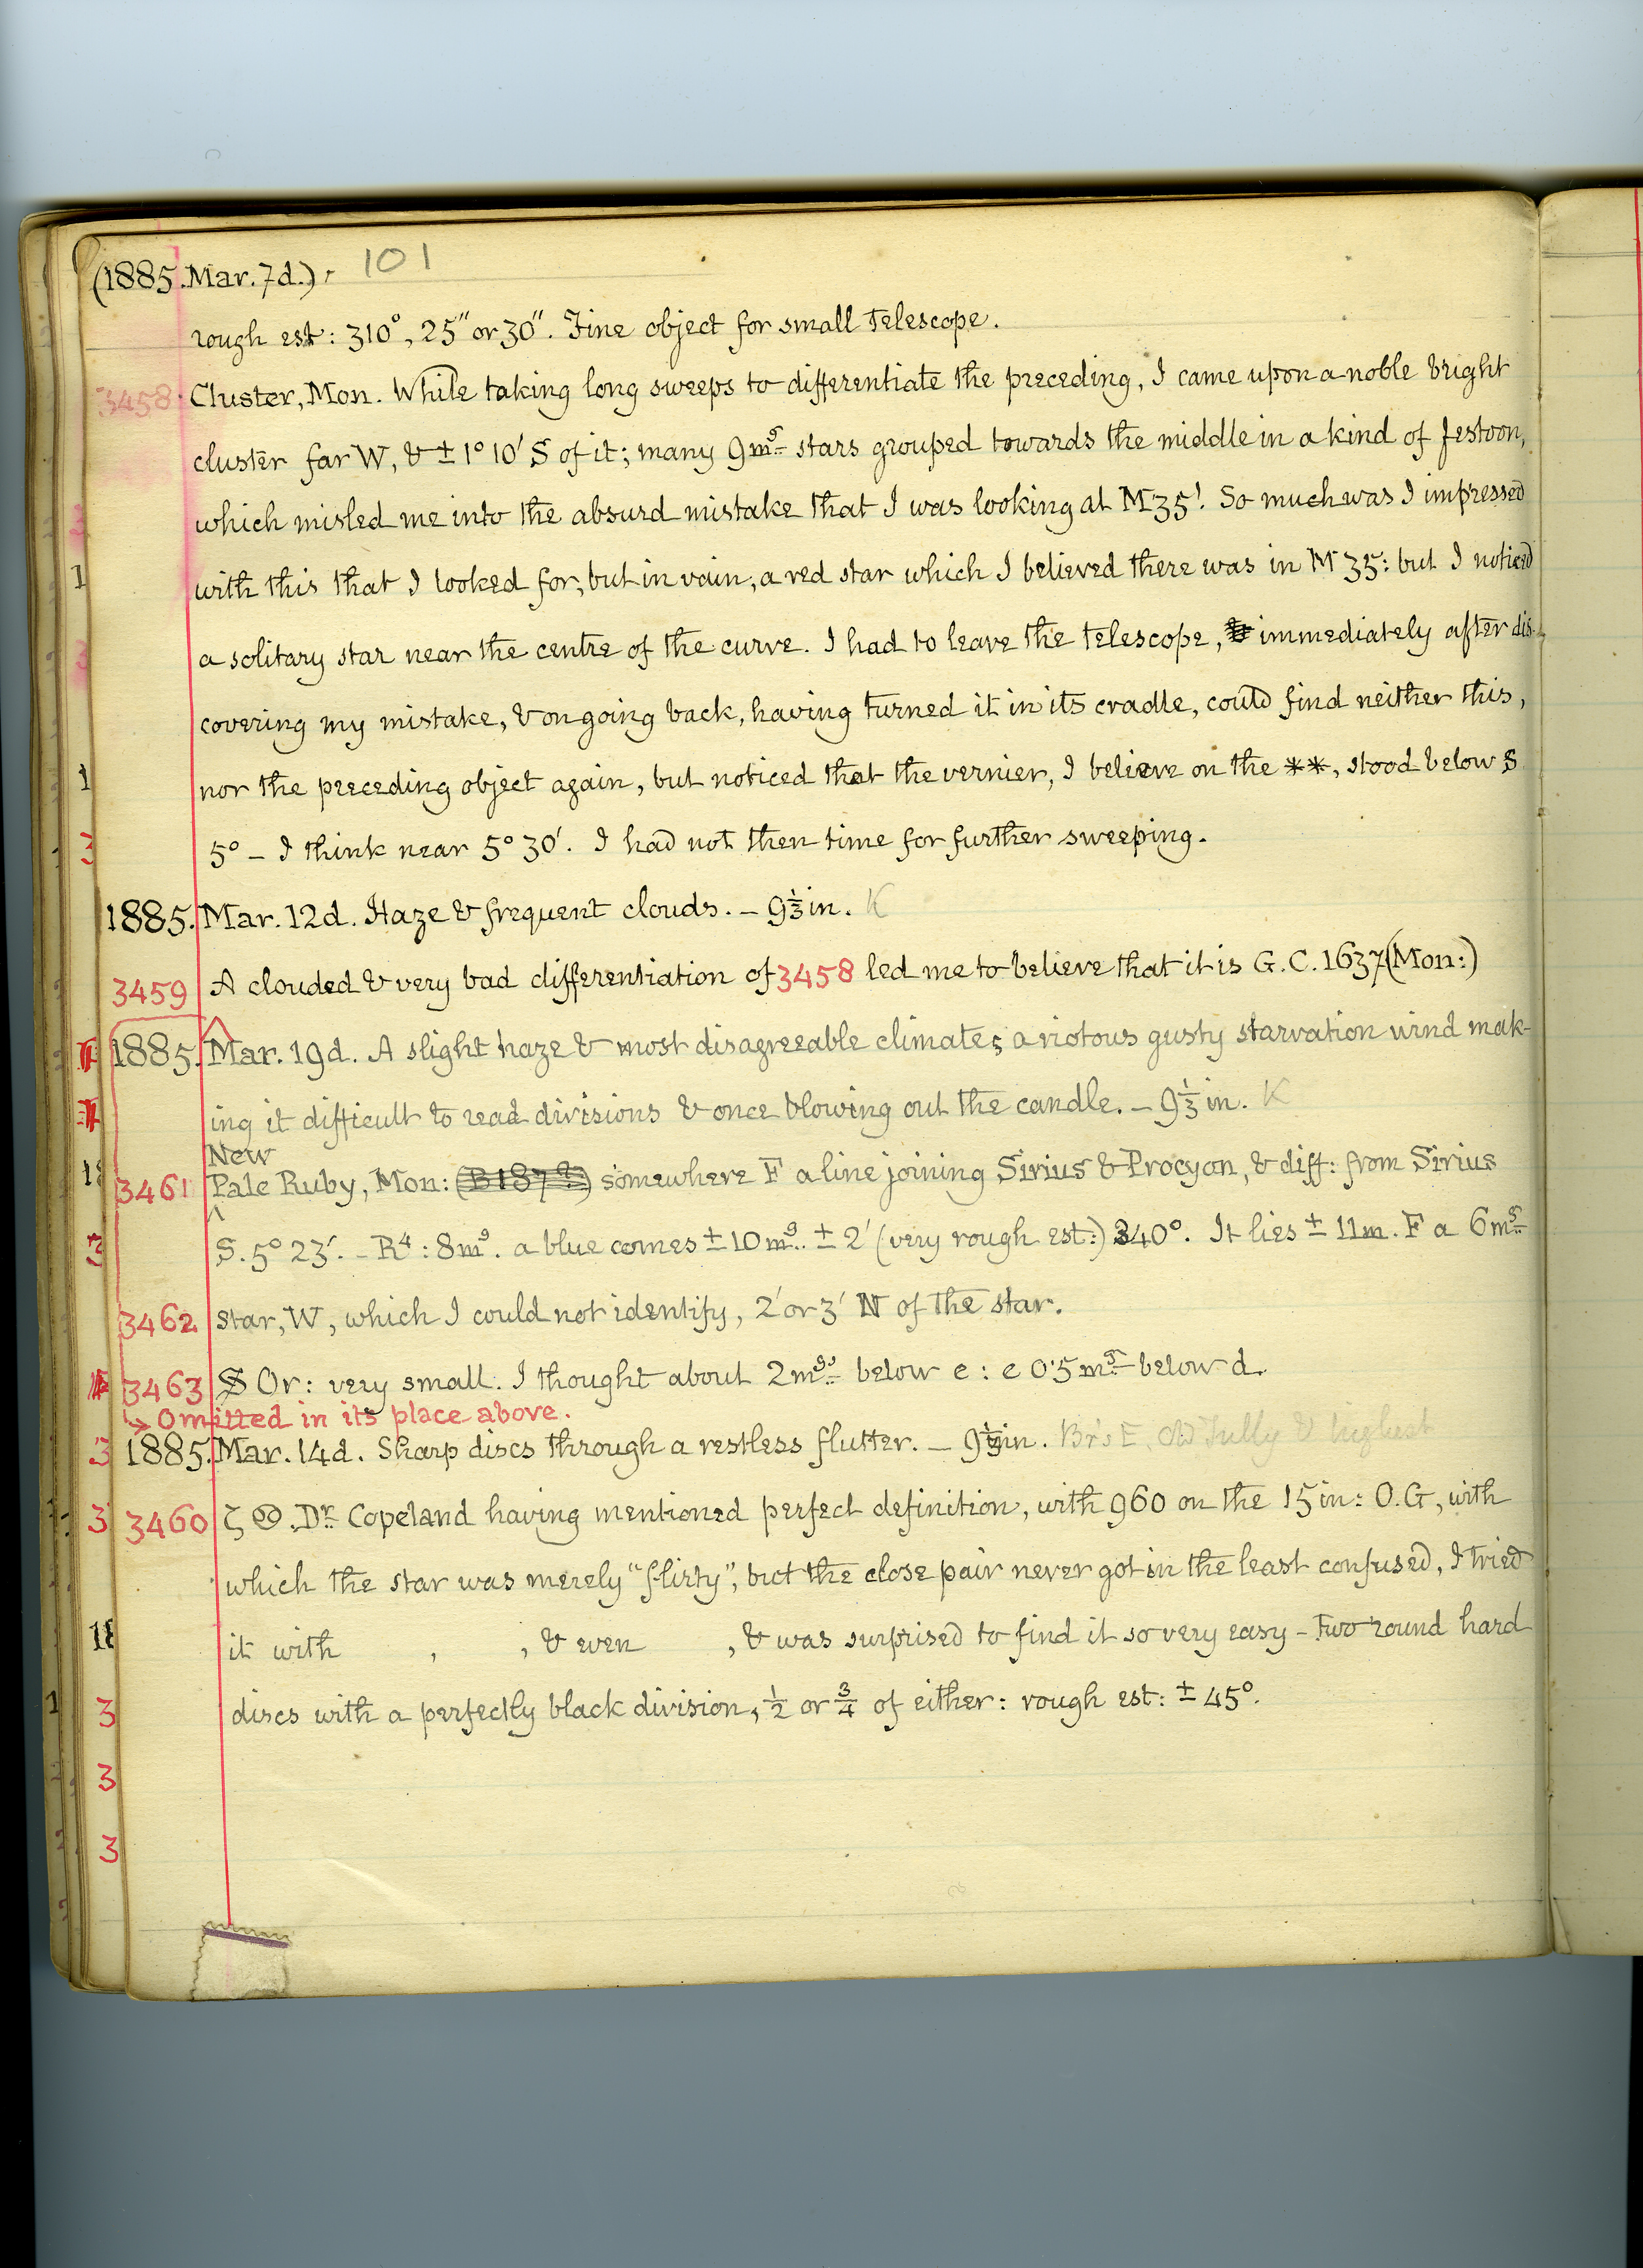 (1885. Mar. 7d.). 101
rough est: 310°, 25" or 30". Fine object for small telescope.
3458 Cluster, Mon. While taking long sweeps to differentiate the preceding, I came upon a noble bright
cluster far W, & ± 1° 10' S of it; many 9mg stars grouped towards the middle in a kind of festoon,
which misled me into the absurd mistake that I was looking at M35! So much was I impressed
with this that I looked for, but in vain, a red star which I believed there was in M 35: but I noticed
a solitary star near the centre of the curve. I had to leave the telescope, immediately after dis-
covering my mistake, & on going back, having turned it in its cradle, could find neither this,
nor the preceding object again, but noticed that the vernier, I believe on the **, stood below S
5° – I think near 5° 30'. I had not then time for further sweeping.
1885. Mar. 12d. Haze & frequent clouds. – 9⅓in. K
3459 A clouded & very bad differentiation of 3458 led me to believe that it is G.C. 1637 (Mon:)
1885. Mar. 19d. A slight haze & most disagreeable climate; a riotous gusty starvation wind mak-
ing it difficult to read divisions & once blowing out the candle. – 9⅓ in. K
New
3461 Pale Ruby, Mon: somewhere F a line joining Sirius & Procyon, & diff: from Sirius
S. 5° 23'. – R⁴: 8mg. a blue comes ± 10mg. ± 2' (very rough est:) 340°. It lies ± 11m. F a 6mg
3462 star, W, which I could not identify, 2' or 3' N of the star.
3463 S Or: very small. I thought about 2mgs below e: e 0·5mg below d.
↳ Omitted in its place above.
1885. Mar. 14d. Sharp discs through a restless flutter. – 9⅓in. Br's E, Old Tully & highest
3460 ζ ♋. Dr Copeland having mentioned perfect definition, with 960 on the 15in: O.G, with
which the star was merely "flirty", but the close pair never got in the least confused, I tried
it with , , & even , & was surprised to find it so very easy – two round hard
discs with a perfectly black division, ½ or ¾ of either: rough est: ± 45°.